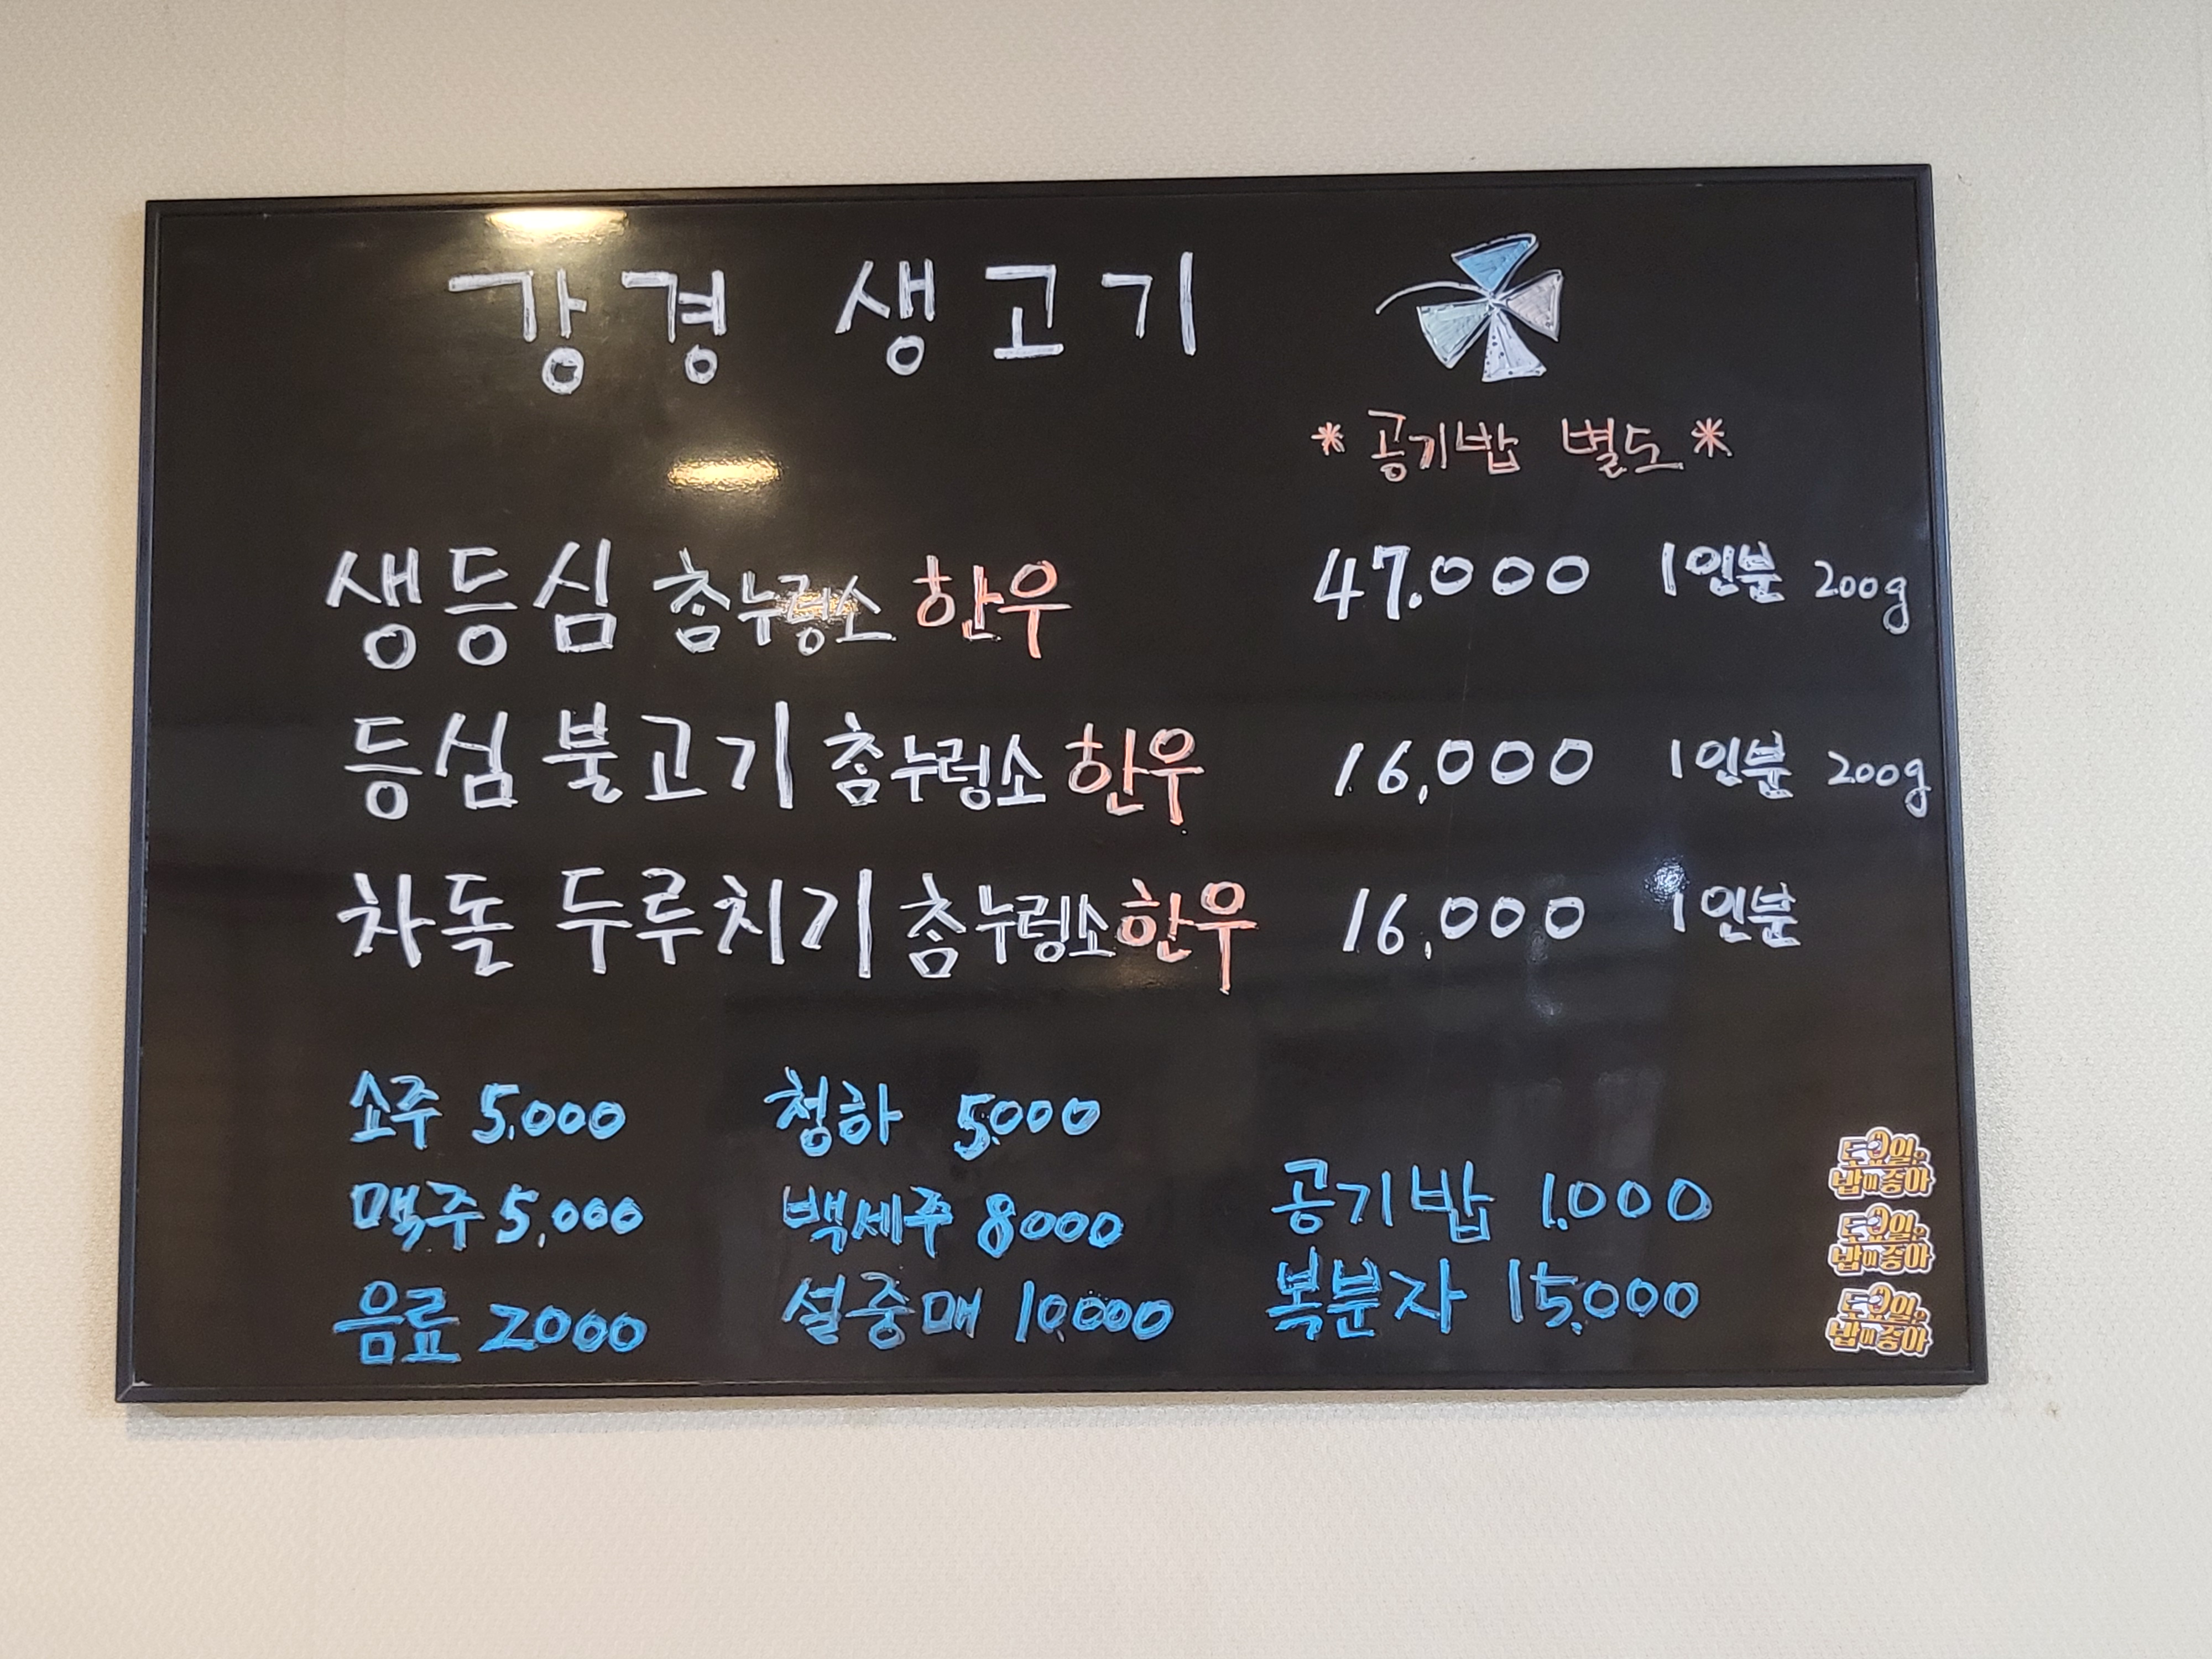 강경 생고기
* 공기밥 별도 *
생등심 참누렁소 한우 47.000 1인분 200g
등심 불고기 참누렁소 한우 16,000 1인분 200g
차돌 두루치기 참누렁소 한우 16,000 1인분
소주 5,000 청하 5,000
맥주 5,000 백세주 8000 공기밥 1.000
음료 2000 설중매 10,000 복분자 15,000
토요일은
밥이 좋아
토요일은
밥이 좋아
토요일은
밥이 좋아